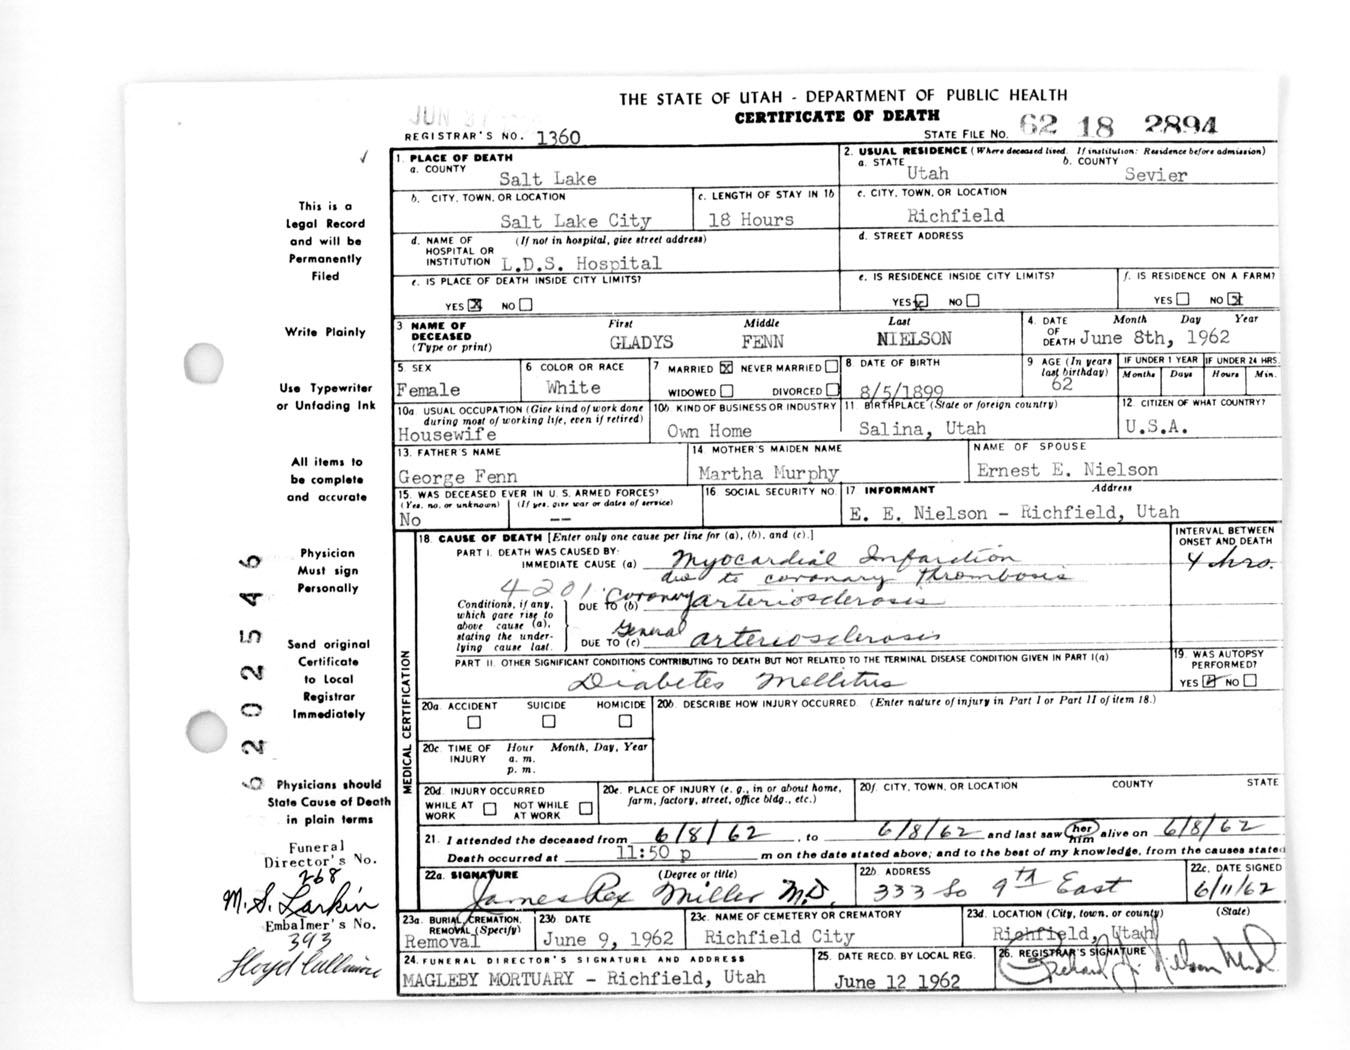 THE STATE OF UTAH - DEPARTMENT OF PUBLIC HEALTH
CERTIFICATE OF DEATH
JUN
REGISTRAR'S NO. 1360
STATE FILE NO. 62 18 2894
This is a
Legal Record
and will be
Permanently
Filed
Write Plainly
Use Typewriter
or Unfading Ink
All items to
be complete
and accurate
Physician
Must sign
Personally
Send original
Certificate
to Local
Registrar
Immediately
Physicians should
State Cause of Death
in plain terms
Funeral
Director's No.
268
M. S. Larkin
Embalmer's No.
393
62202546
1. PLACE OF DEATH
a. COUNTY
Salt Lake
2. USUAL RESIDENCE (Where deceased lived. If institution: Residence before admission)
a. STATE Utah b. COUNTY Sevier
b. CITY, TOWN, OR LOCATION
Salt Lake City
c. LENGTH OF STAY IN 1b
18 Hours
c. CITY, TOWN, OR LOCATION
Richfield
d. NAME OF HOSPITAL OR INSTITUTION (If not in hospital, give street address)
L.D.S. Hospital
d. STREET ADDRESS
e. IS PLACE OF DEATH INSIDE CITY LIMITS?
YES X NO
e. IS RESIDENCE INSIDE CITY LIMITS?
YES X NO
f. IS RESIDENCE ON A FARM?
YES NO X
3 NAME OF DECEASED (Type or print)
First Middle Last
GLADYS FENN NIELSON
4. DATE OF DEATH Month Day Year
June 8th, 1962
5 SEX
Female
6 COLOR OR RACE
White
7 MARRIED X NEVER MARRIED
WIDOWED DIVORCED
8 DATE OF BIRTH
8/5/1899
9 AGE (In years last birthday)
62
IF UNDER 1 YEAR
Months Days
IF UNDER 24 HRS.
Hours Min.
10a. USUAL OCCUPATION (Give kind of work done during most of working life, even if retired)
Housewife
10b. KIND OF BUSINESS OR INDUSTRY
Own Home
11 BIRTHPLACE (State or foreign country)
Salina, Utah
12 CITIZEN OF WHAT COUNTRY?
U.S.A.
13. FATHER'S NAME
George Fenn
14 MOTHER'S MAIDEN NAME
Martha Murphy
NAME OF SPOUSE
Ernest E. Nielson
15. WAS DECEASED EVER IN U. S. ARMED FORCES?
(Yes, no, or unknown) (If yes, give war or dates of service)
No --
16 SOCIAL SECURITY NO.
17 INFORMANT Address
E. E. Nielson - Richfield, Utah
MEDICAL CERTIFICATION
18. CAUSE OF DEATH [Enter only one cause per line for (a), (b), and (c).]
INTERVAL BETWEEN ONSET AND DEATH
PART I. DEATH WAS CAUSED BY:
IMMEDIATE CAUSE (a) Myocardial Infarction
4 hrs.
due to coronary thrombosis
4201
Conditions, if any, which gave rise to above cause (a), stating the underlying cause last.
DUE TO (b) Coronary arteriosclerosis
DUE TO (c) General arteriosclerosis
PART II. OTHER SIGNIFICANT CONDITIONS CONTRIBUTING TO DEATH BUT NOT RELATED TO THE TERMINAL DISEASE CONDITION GIVEN IN PART I(a)
Diabetes Mellitus
19. WAS AUTOPSY PERFORMED?
YES NO
20a. ACCIDENT SUICIDE HOMICIDE
20b. DESCRIBE HOW INJURY OCCURRED. (Enter nature of injury in Part I or Part II of item 18.)
20c. TIME OF INJURY Hour Month, Day, Year
a. m.
p. m.
20d. INJURY OCCURRED
WHILE AT WORK NOT WHILE AT WORK
20e. PLACE OF INJURY (e. g., in or about home, farm, factory, street, office bldg., etc.)
20f. CITY, TOWN, OR LOCATION COUNTY STATE
21. I attended the deceased from 6/8/62, to 6/8/62 and last saw her him alive on 6/8/62
Death occurred at 11:50 p m on the date stated above; and to the best of my knowledge, from the causes stated
22a. SIGNATURE (Degree or title)
James Rex Miller M.D.
22b. ADDRESS
333 So 9th East
22c. DATE SIGNED
6/11/62
23a. BURIAL, CREMATION, REMOVAL (Specify)
Removal
23b. DATE
June 9, 1962
23c. NAME OF CEMETERY OR CREMATORY
Richfield City
23d. LOCATION (City, town, or county) (State)
Richfield, Utah
24. FUNERAL DIRECTOR'S SIGNATURE AND ADDRESS
MAGLEBY MORTUARY - Richfield, Utah
25. DATE RECD. BY LOCAL REG.
June 12 1962
26. REGISTRAR'S SIGNATURE